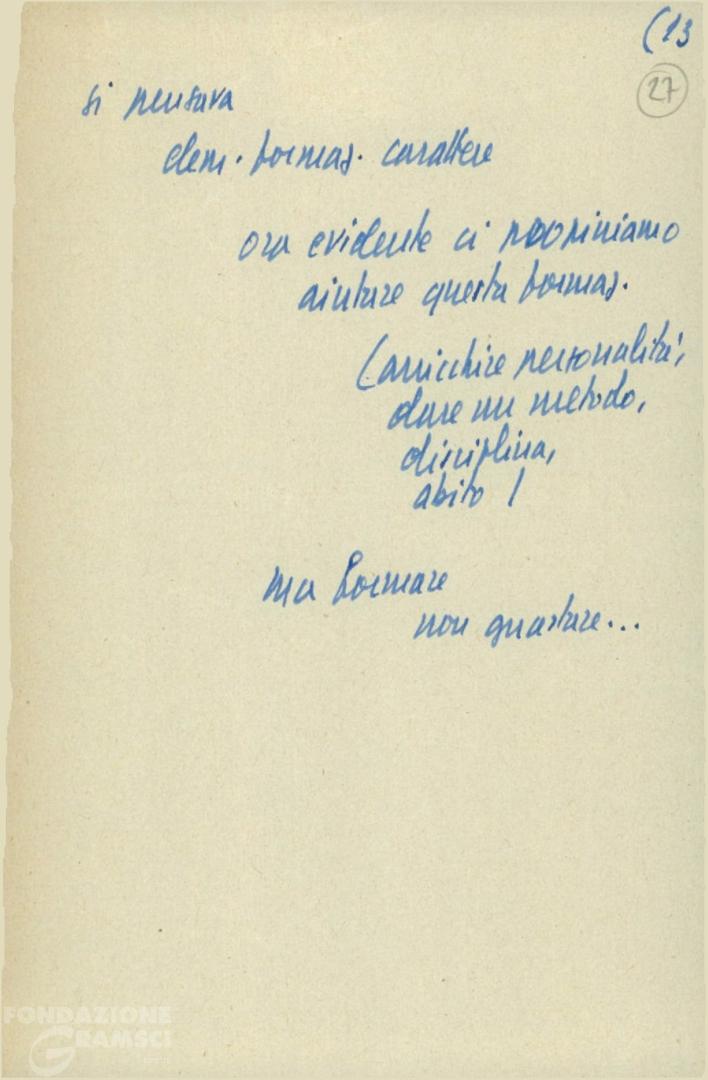 (13
27
si pensava
elem. formaz. carattere
ora evidente ci proponiamo
aiutare questa formaz.
(arricchire personalità,
dare un metodo,
disciplina,
abito!
ma formare
non guastare...
FONDAZIONE
GRAMSCI